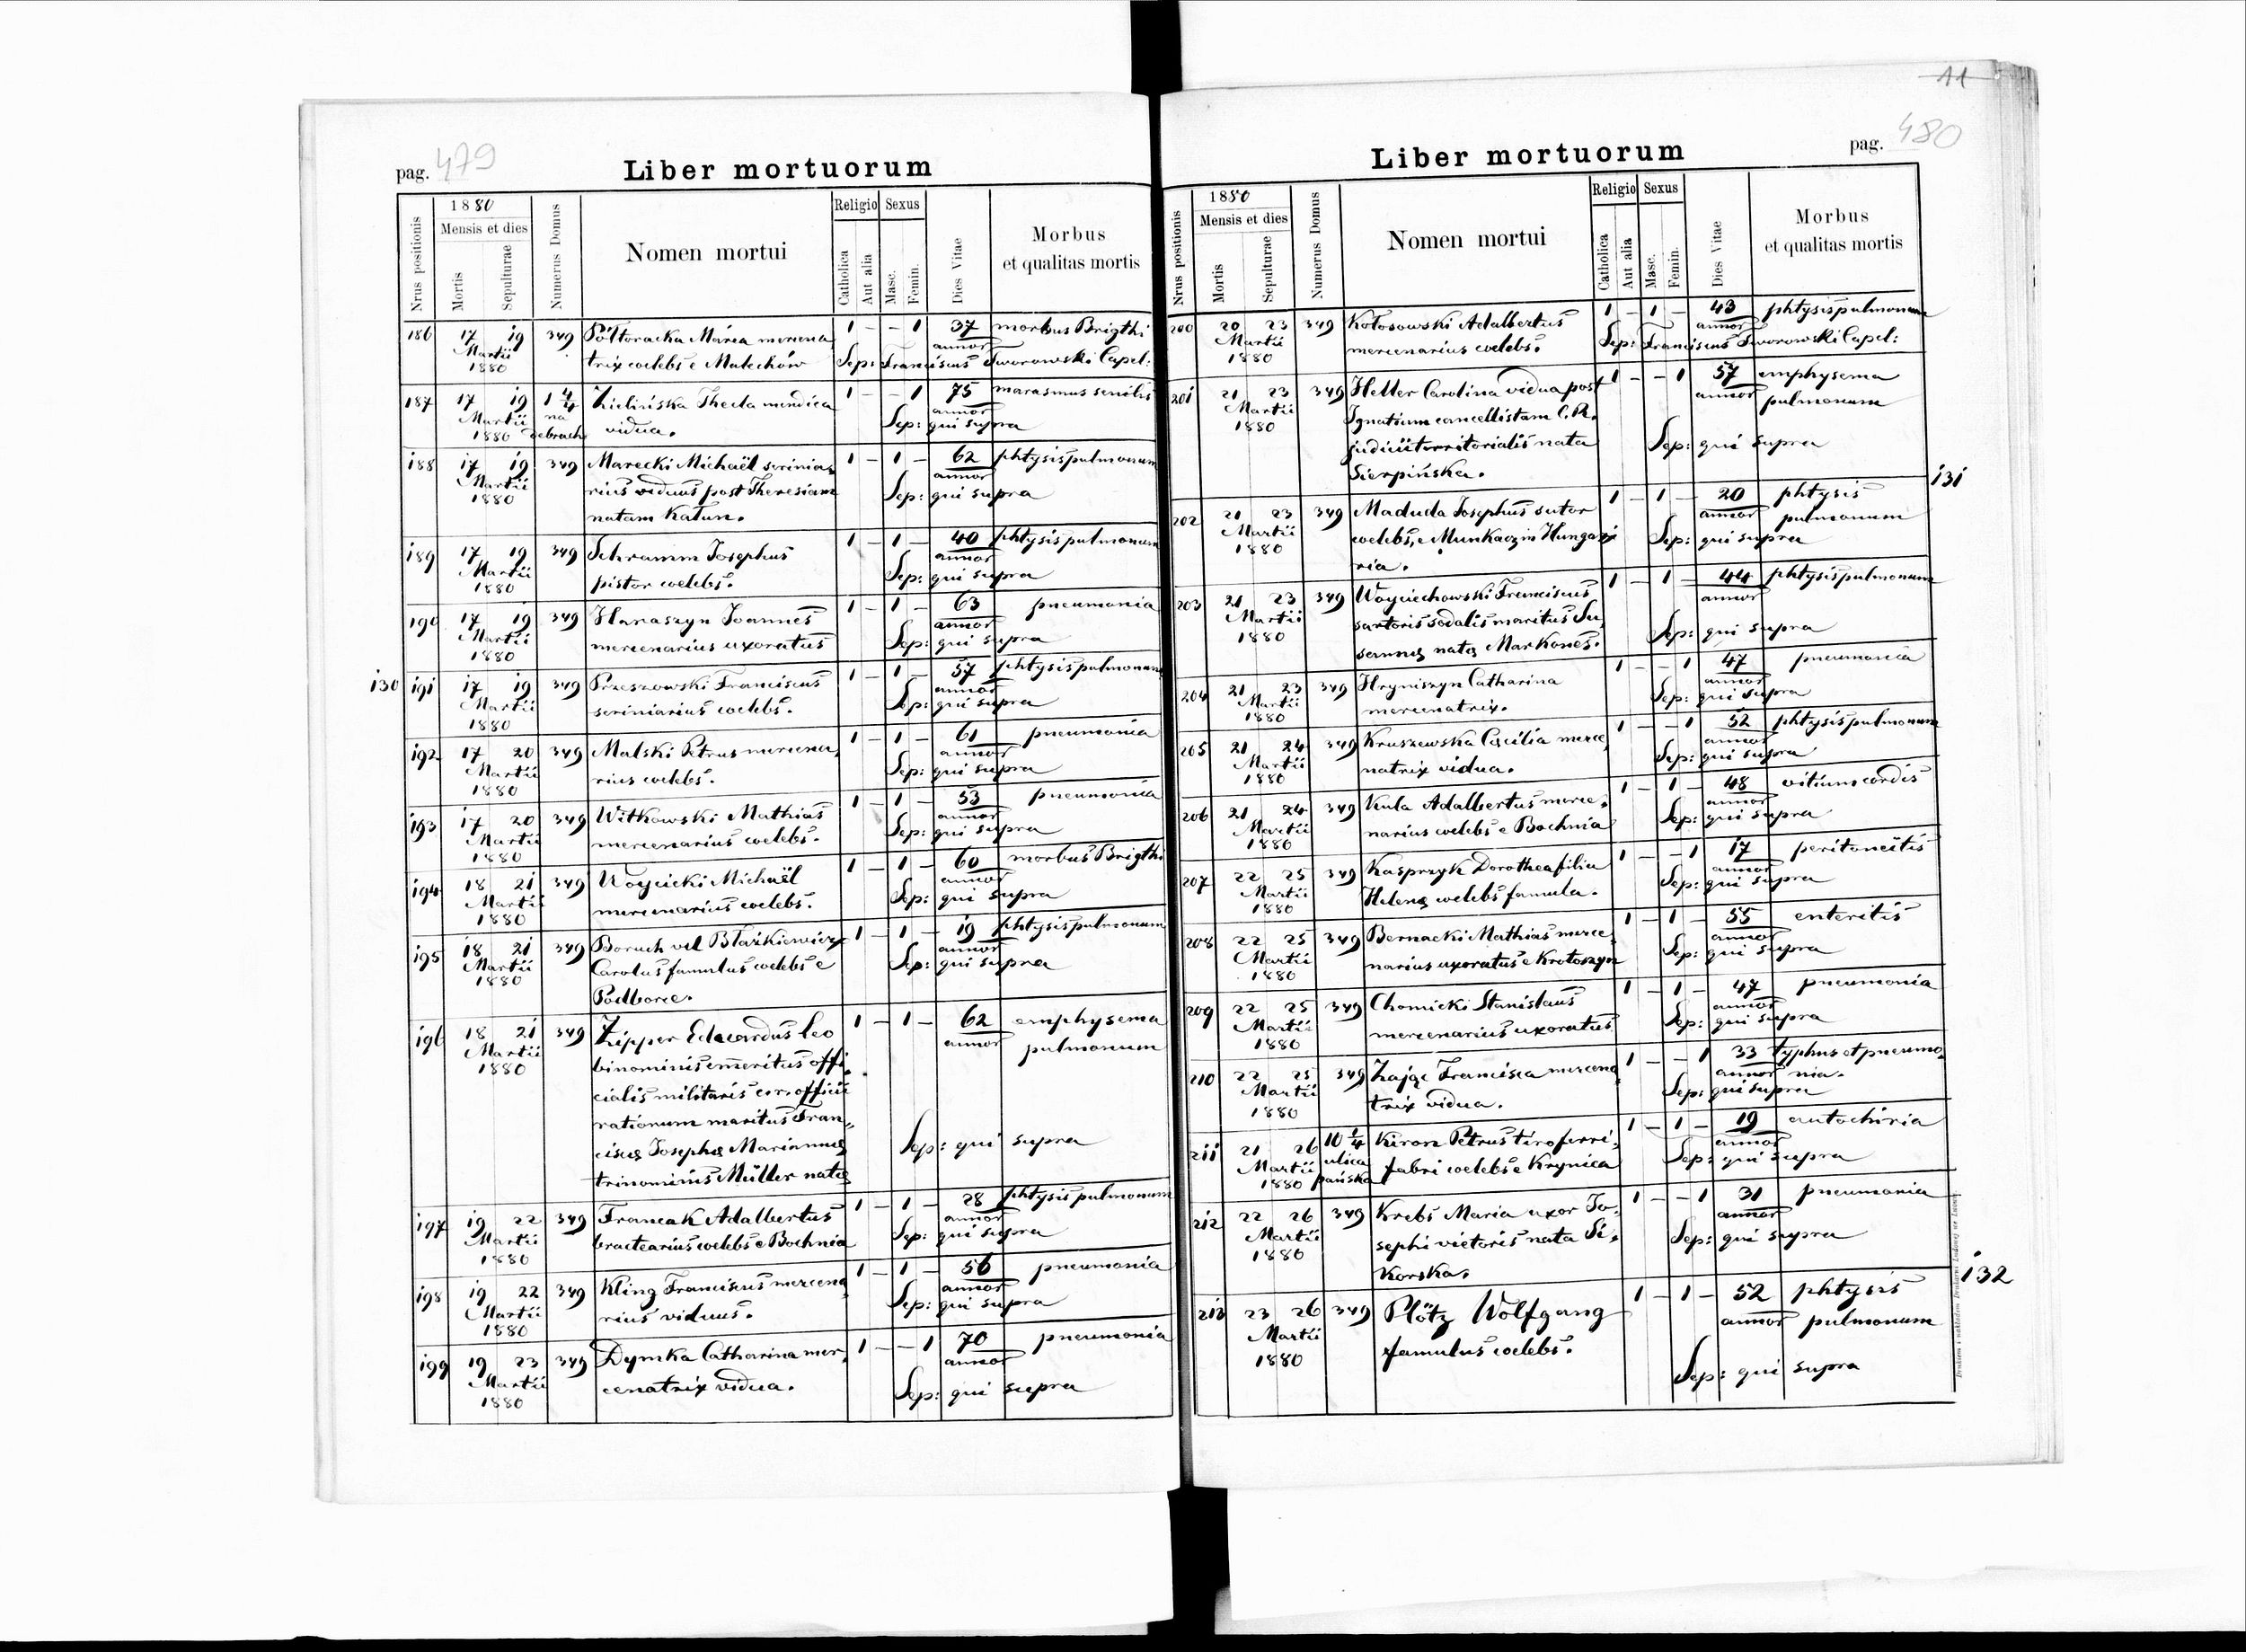 11
pag. 479
Liber mortuorum
Nrus positionis
1880
Mensis et dies
Mortis
Sepulturae
Numerus Domus
Nomen mortui
Religio
Catholica
Aut alia
Sexus
Masc.
Femin.
Dies Vitae
Morbus
et qualitas mortis
186 17 19 349 Półtoracka Maria mercena, 1 – – 1 37 morbus Brigthi
Martii trix coelebs e Malechów annor
1880 Sep: Franciscus Tworowski Capel:
187 17 19 1 4/4 Zielińska Thecla mendica 1 – – 1 75 marasmus senilis
Martii na vidua. annor
1880 debrach Sep: qui supra
188 17 19 349 Marecki Michaël scrinia, 1 – 1 – 62 phtysis pulmonum
Martii rius viduus post Theresiam annor
1880 natam Katun. Sep: qui supra
189 17 19 349 Schramm Josephus 1 – 1 – 40 phtysis pulmonum
Martii pistor coelebs. annor
1880 Sep: qui supra
190 17 19 349 Hanaszyn Joannes 1 – 1 – 63 pneumonia
Martii mercenarius uxoratus annor
1880 Sep: qui supra
130 191 17 19 349 Przeszowski Franciscus 1 – 1 – 57 phtysis pulmonum
Martii scriniarius coelebs. annor
1880 Sep: qui supra
192 17 20 349 Malski Petrus mercena, 1 – 1 – 61 pneumonia
Martii rius coelebs. annor
1880 Sep: qui supra
193 17 20 349 Witkowski Mathias 1 – 1 – 53 pneumonia
Martii mercenarius coelebs. annor
1880 Sep: qui supra
194 18 21 349 Woycicki Michaël 1 – 1 – 60 morbus Brigthi
Martii mercenarius coelebs. annor
1880 Sep: qui supra
195 18 21 349 Boruch vel Błażkiewicz 1 – 1 – 19 phtysis pulmonum
Martii Carolus famulus coelebs e annor
1880 Podborce. Sep: qui supra
196 18 21 349 Zipper Edwardus Leo 1 – 1 – 62 emphysema
Martii binominis emeritus offi, annor pulmonum
1880 cialis militaris c. r. officii
rationum maritus Fran,
ciscæ Josephæ Mariannæ Sep: qui supra
trinominis Müller natæ
197 19 22 349 Francak Adalbertus 1 – 1 – 28 phtysis pulmonum
Martii bractearius coelebs e Bochnia annor
1880 Sep: qui supra
198 19 22 349 Kling Franciscus mercena, 1 – 1 – 56 pneumonia
Martii rius viduus. annor
1880 Sep: qui supra
199 19 23 349 Dymka Catharina mer, 1 – – 1 70 pneumonia
Martii cenatrix vidua. annor
1880 Sep: qui supra
pag. 480
Liber mortuorum
Nrus positionis
1880
Mensis et dies
Mortis
Sepulturae
Numerus Domus
Nomen mortui
Religio
Catholica
Aut alia
Sexus
Masc.
Femin.
Dies Vitae
Morbus
et qualitas mortis
200 20 23 349 Kołosowski Adalbertus 1 – 1 – 43 phtysis pulmonum
Martii mercenarius coelebs. annor
1880 Sep: Franciscus Tworowski Capel:
201 21 23 349 Heller Carolina vidua post 1 – – 1 57 emphysema
Martii Ignatium cancellistam C. R. annor pulmonum
1880 judicii territorialis nata Sep: qui supra
Sierpińska.
131
202 21 23 349 Maduda Josephus sutor 1 – 1 – 20 phtysis
Martii coelebs, e Munkacz in Hunga, annor pulmonum
1880 ria. Sep: qui supra
203 21 23 349 Woyciechowski Franciscus 1 – 1 – 44 phtysis pulmonum
Martii sartoris sodalis maritus Su, annor
1880 sannæ natæ Markones. Sep: qui supra
204 21 23 349 Hryniszyn Catharina 1 – – 1 47 pneumonia
Martii mercenatrix. annor
1880 Sep: qui supra
205 21 24 349 Kruszewska Cæcilia merce, 1 – – 1 52 phtysis pulmonum
Martii natrix vidua. annor
1880 Sep: qui supra
206 21 24 349 Kula Adalbertus merce, 1 – 1 – 48 vitium cordis
Martii narius coelebs e Bochnia annor
1880 Sep: qui supra
207 22 25 349 Kasprzyk Dorothea filia 1 – – 1 17 peritoneitis
Martii Helenæ coelebs famula. annor
1880 Sep: qui supra
208 22 25 349 Bernacki Mathias merce, 1 – 1 – 55 enteritis
Martii narius uxoratus e Krotoszyn annor
1880 Sep: qui supra
209 22 25 349 Chomicki Stanislaus 1 – 1 – 47 pneumonia
Martii mercenarius uxoratus annor
1880 Sep: qui supra
210 22 25 349 Zając Francisca mercena, 1 – – 1 33 typhus et pneumo,
Martii trix vidua. annor nia.
1880 Sep: qui supra
211 21 26 10 1/4 Kiron Petrus tiro ferri, 1 – 1 – 19 autochiria
Martii ulica fabri coelebs e Krynica annor
1880 pańska Sep: qui supra
212 22 26 349 Krebs Maria uxor Jo, 1 – – 1 31 pneumonia
Martii sephi vietoris nata Si, annor
1880 korska. Sep: qui supra
132
213 23 26 349 Plötz Wolfgang 1 – 1 – 52 phtysis
Martii famulus coelebs. annor pulmonum
1880 Sep: qui supra